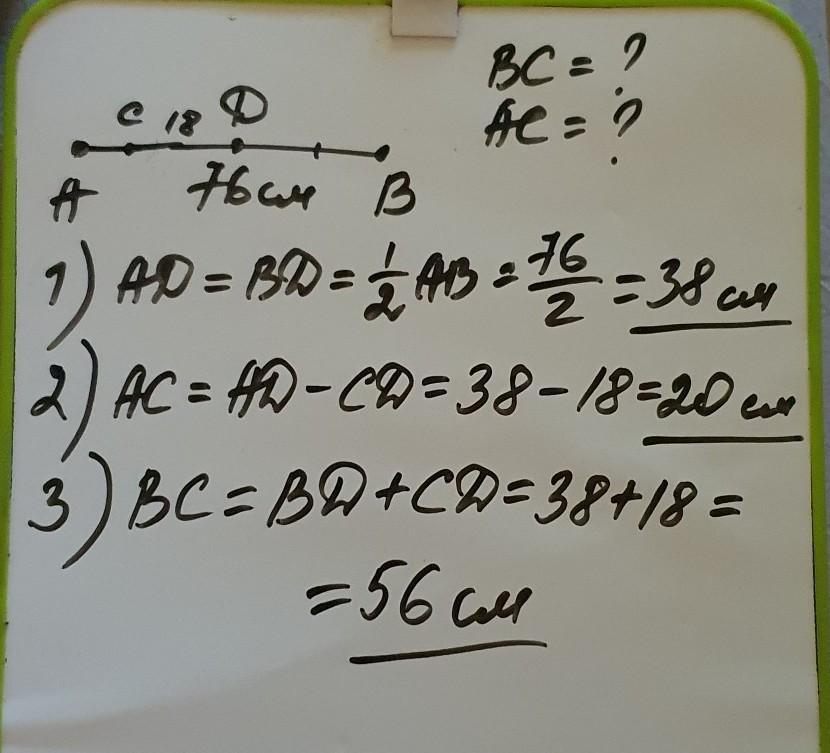 BC = ?
AC = ?
C 18 D
A 76 см B
1) AD = BD = 1/2 AB = 76/2 = 38 см
2) AC = AD - CD = 38 - 18 = 20 см
3) BC = BD + CD = 38 + 18 =
= 56 см